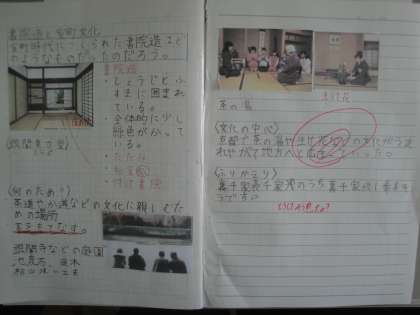 書院造と室町文化
室町時代につくられた書院造とは
のようなものだったのだろう。
書院造
・しょうじとふ
すまに囲まれ
ている。
・全体的に少し
緑色がかって
いる。
・たたみ
・付け書院
(銀閣東求堂)
(何のため?)
茶道や華道などの文化に親しむた
めの場所
もてなす。
銀閣寺などの庭園
生け花
茶の湯
(文化の中心)
京都で茶の湯や生け花などの文化がうま
れやがて地方へと広まっていった。
(ふりかえり)
裏千家表千家